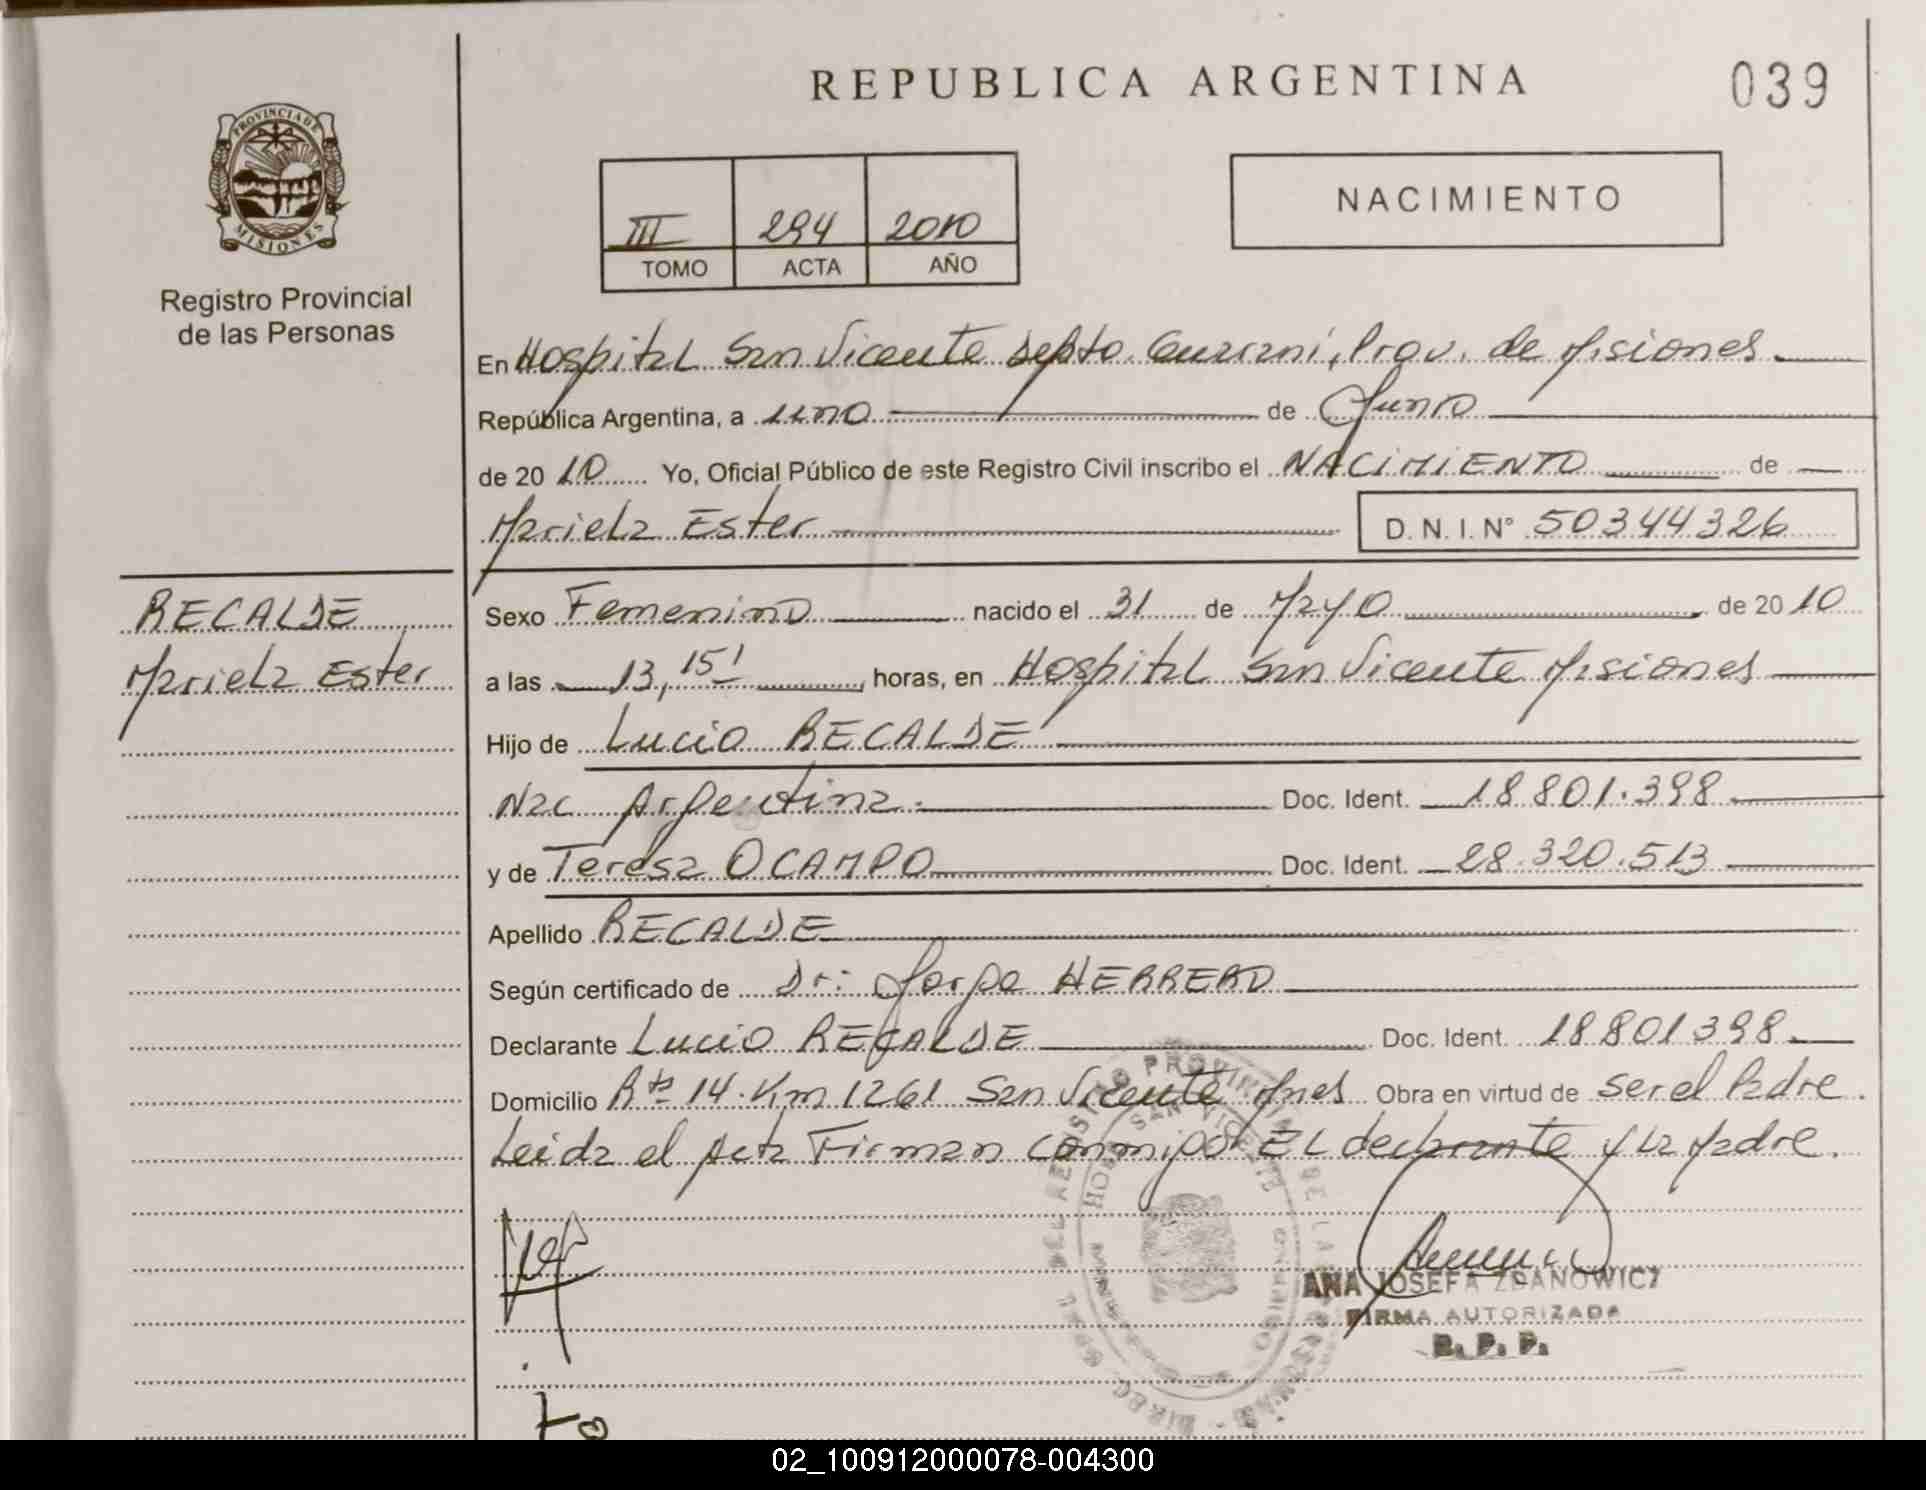 REPUBLICA ARGENTINA
039
PROVINCIA DE
MISIONES
Registro Provincial
de las Personas
III 294 2010
TOMO ACTA AÑO
NACIMIENTO
En Hospital San Vicente Depto. Guarani, Prov. de Misiones.
República Argentina, a uno de Junio
de 2010 Yo, Oficial Público de este Registro Civil inscribo el NACIMIENTO de
Mariela Ester D.N.I.N° 50344326
RECALDE
Mariela Ester
Sexo Femenino nacido el 31 de Mayo de 2010
a las 13,15' horas, en Hospital San Vicente Misiones
Hijo de Lucio RECALDE
Nac Argentina. Doc. Ident. 18.801.398
y de Teresa OCAMPO Doc. Ident. 28.320.513
Apellido RECALDE
Según certificado de Dr: Jorge HERRERO
Declarante Lucio RECALDE Doc. Ident. 18801398
Domicilio Rta 14. Km 1261 San Vicente Mnes Obra en virtud de ser el Padre.
Leida el Acta Firman conmigo EL declarante y la Madre.
ANA JOSEFA ZDANOWICZ
FIRMA AUTORIZADA
R. P. P.
02_100912000078-004300